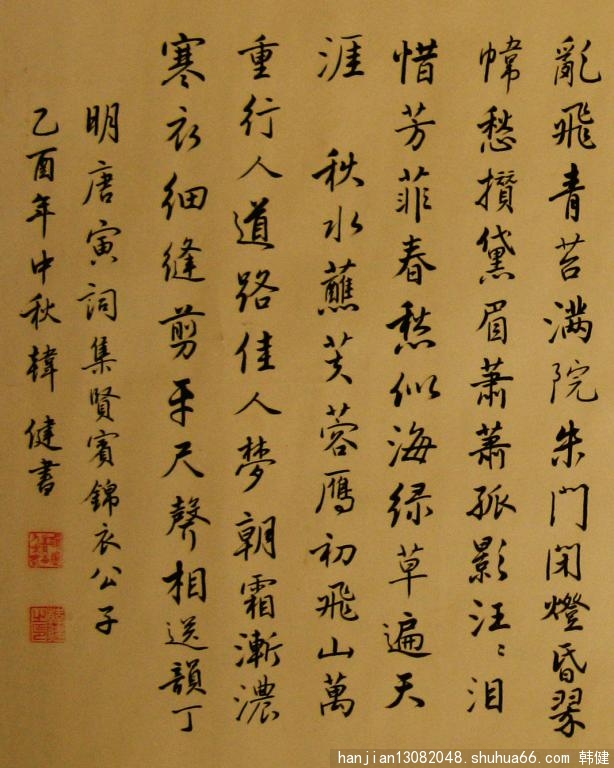 亂飛青苔满院朱門閉燈昏翠
幃愁攢黛眉蕭蕭孤影汪々泪
惜芳菲春愁似海绿草遍天
涯 秋水蘸芙蓉鴈初飛山萬
重行人道路佳人夢朝霜漸濃
寒衣细縫剪牙尺聲相送韻丁
明唐寅詞集賢賓錦衣公子
乙酉年中秋韓健書
hanjian13082048.shuhua66.com 韩健